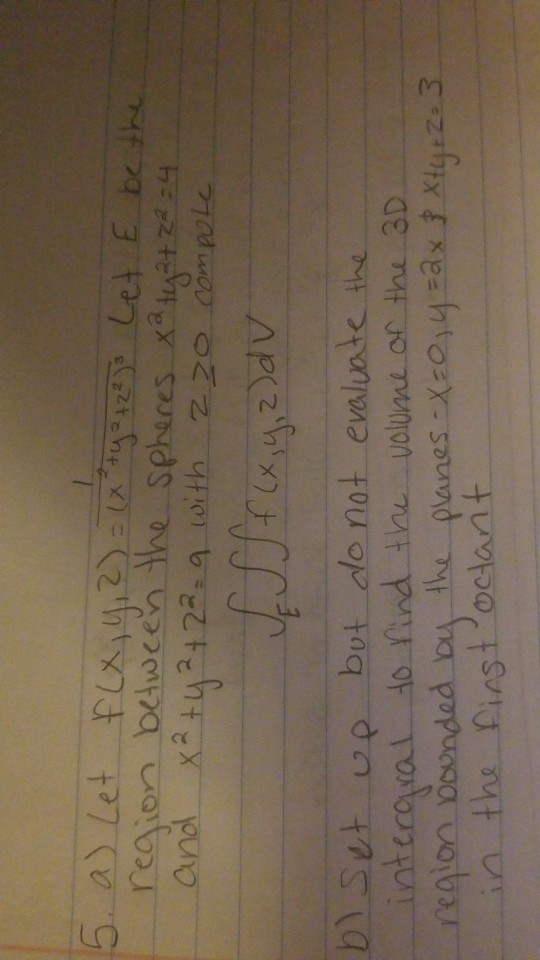 5. a) Let f(x,y,z) = 1/(x²+y²+z²)³ Let E be the
region between the spheres x²+y²+z²=4
and x²+y²+z²=9 with z≥0 compute
∫∫∫_E f(x,y,z)dV
b) Set up but do not evaluate the
intergral to find the volume of the 3D
region bounded by the planes - x=0, y=2x & x+y+z=3
in the first octant